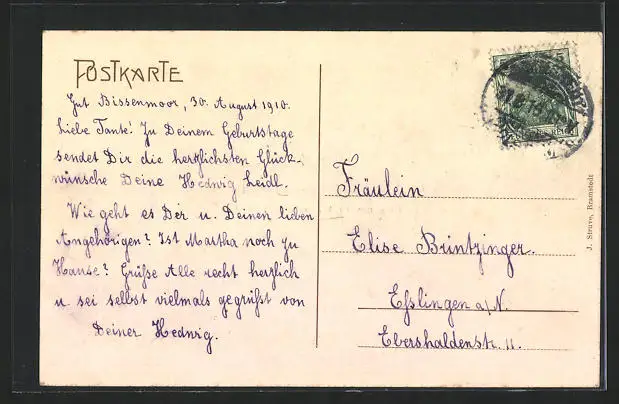 POSTKARTE
Gut Bissenmoor, 30. August 1910.
Liebe Tante! Zu Deinem Geburtstage
sendet Dir die herzlichsten Glück-
wünsche Deine Hedwig Leidl.
Wie geht es Dir u. Deinen lieben
Angehörigen? Ist Martha noch zu
Hause? Grüße Alle recht herzlich
u. sei selbst vielmals gegrüßt von
Deiner Hedwig.
Fräulein
Elise Brintzinger.
Eßlingen a/N.
Ebershaldenstr. 11.
J. Struve, Bramstedt
REICH